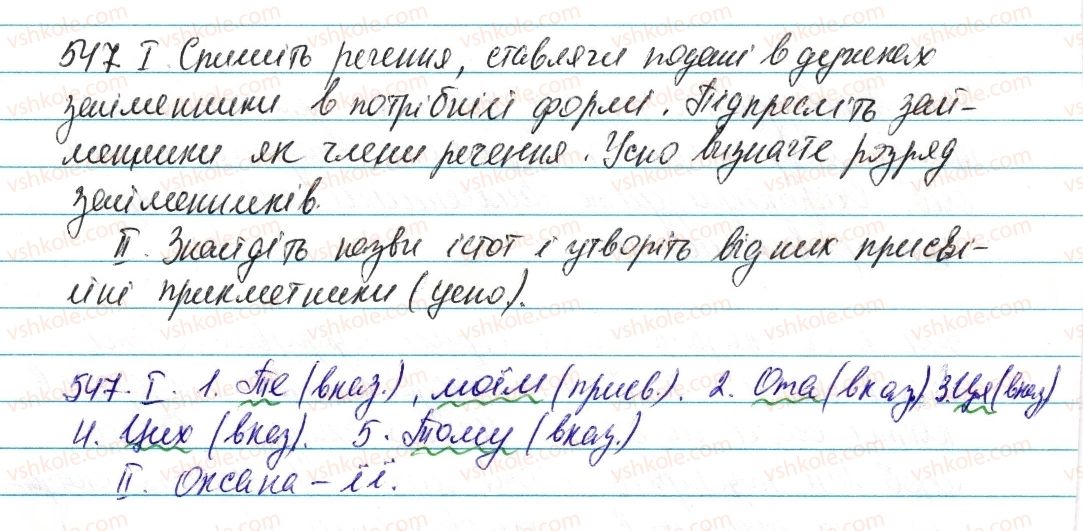 547 I Спишіть речення, ставлячи подані в дужках
займенники в потрібній формі. Підкресліть зай-
менники як члени речення. Усно визначте розряд
займенників.
II. Знайдіть назви істот і утворіть від них присві-
йні прикметники (усно).
547. I. 1. Те (вказ.), моїм (присв.). 2. Ота (вказ) 3. Ця (вказ)
4. Цих (вказ). 5. Тому (вказ.)
II. Оксана - її.